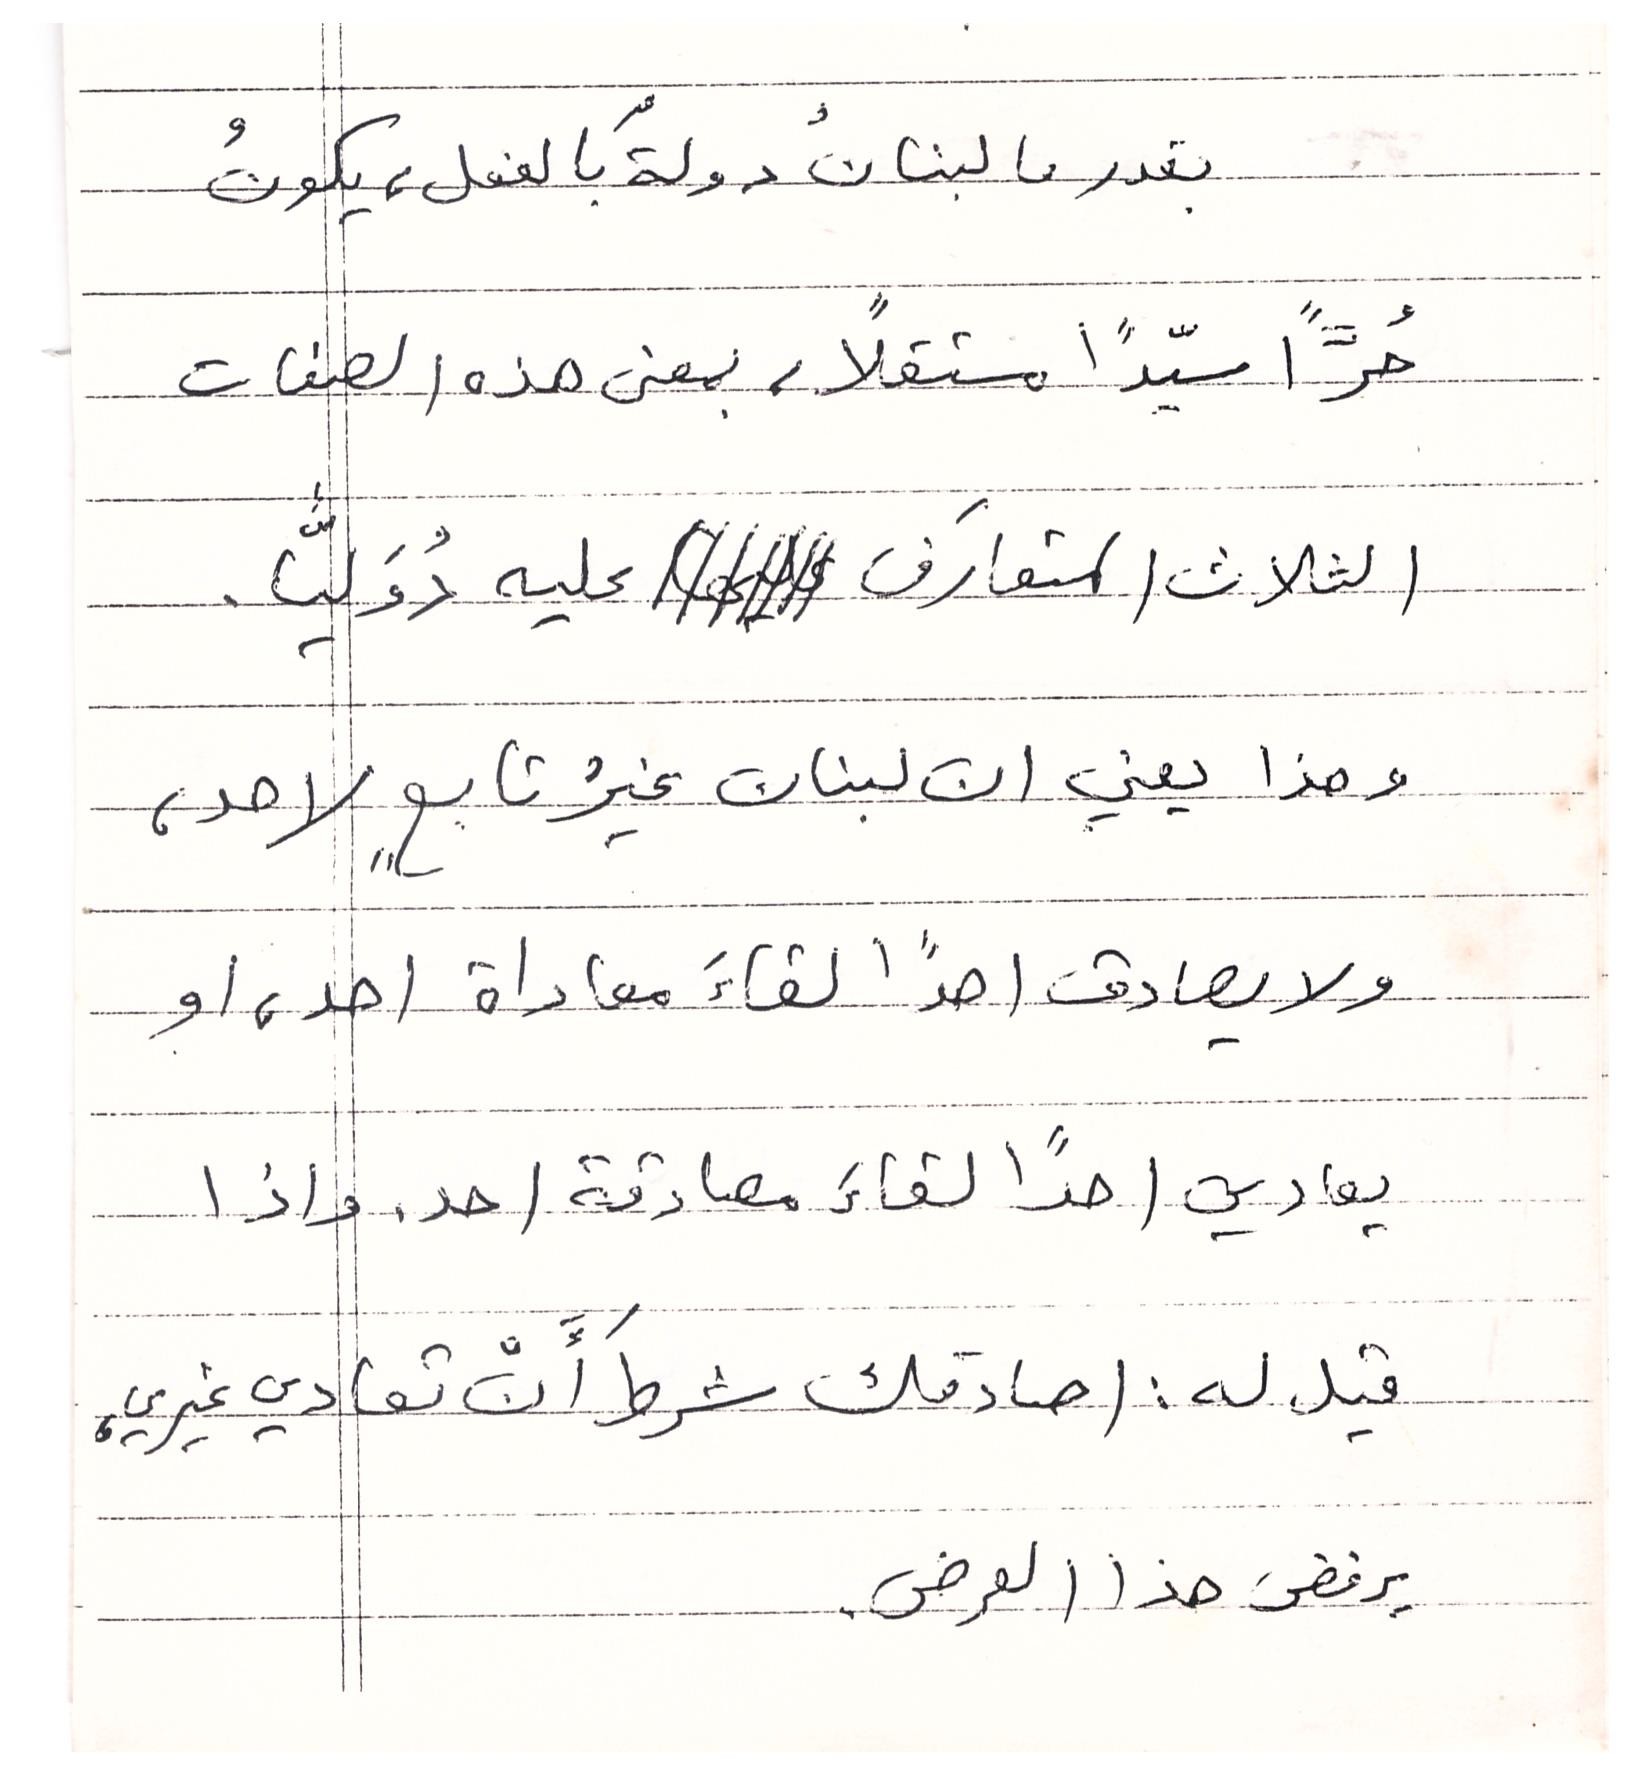 بقدر ما لبنانُ دولةٌ بالفعل، يكونُ
حُرًّا سيّدًا مستقلًا، بمعنى هذه الصفات
الثلاث المتعارَف عليه دُوَليًّا.
وهذا يعني ان لبنان غيرُ تابعٍ لاحد،
ولا يصادق احدًا لقاءَ معاداة احد، او
يعادي احدًا لقاءَ مصادقة احد. واذا
قيل له: اصادقك شرطَ أَنّ تعادي غيري،
يرفض هذا العرض.